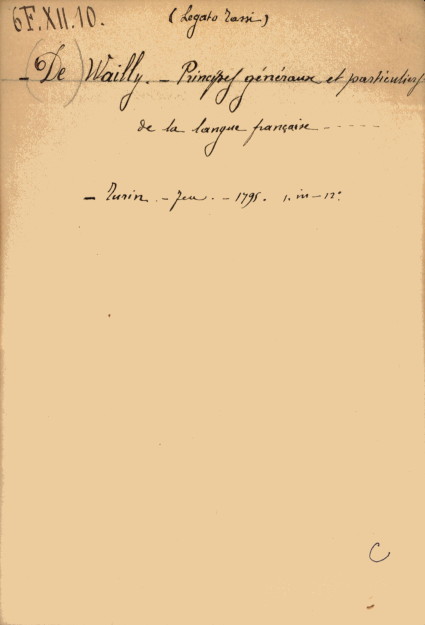 6F.XII.10. (Legato Tassi)
- (De) Wailly. - Principes généraux et particuliers
de la langue française - - - - -
- Turin. - - 1795. 1. in-12°
C